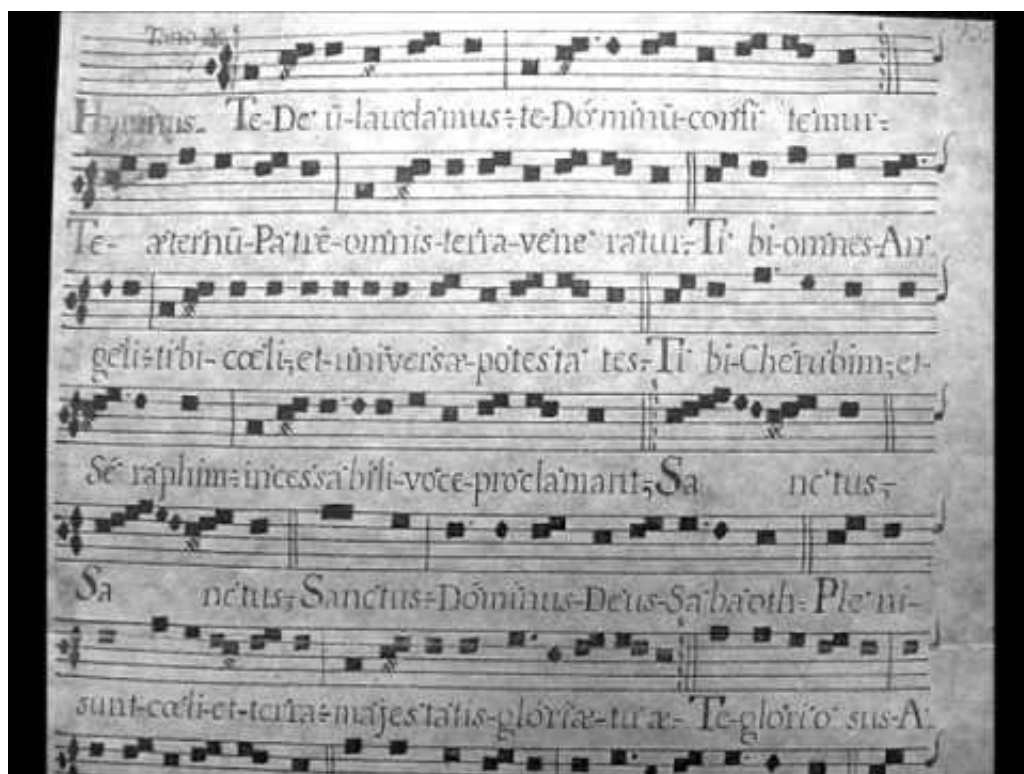 Tono de
Hymnus. Te-De ū-laudamus:-te-Dóminū-confi temur:
Te- æternū-Patrē-omnis-terra-vene ratur:-Ti bi-omnes-An
geli:-tibi-cœli;-et-universæ-potesta tes:-Ti bi-Cherubim;-et-
Sé raphim:-incessabili-voce-proclamant;-Sa nctus;-
Sa nctus;-Sanctus:-Dóminus-Deus-Sabaoth:-Pleni-
sunt-cœli-et-terra:-majestatis-gloriæ-tuæ:- Te-glorio sus-A